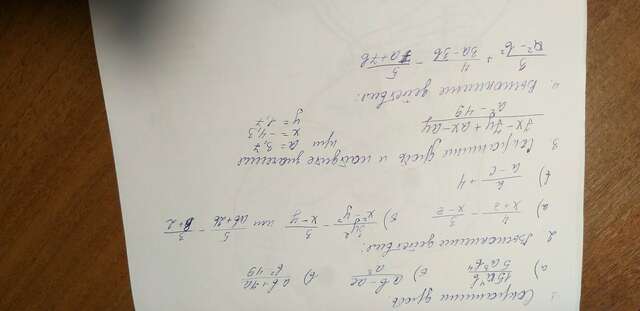 1. Сократить дробь
а) 15a⁴b / 5a³b⁴ б) ab-ac / a² в) ab+7a / b²-49
2. Выполните действия:
а) 4 / x+2 - 3 / x-2 б) 3y² / x²-y² - 3 / x-y или 5 / ab+2b - 3 / b+2
в) b / a-c + 4
3. Сократите дробь и найдите значение
7x-7y+ax-ay / a²-49 при a=3,7
x=-4,3
y=1,7
4. Выполните действия:
3 / a²-b² + 4 / 3a-3b - 5 / 7a+7b